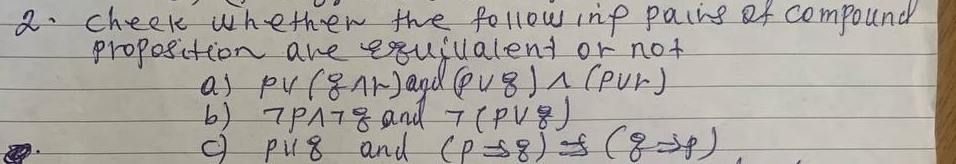 2. Check whether the following pairs of compound
proposition are equivalent or not
a) p∨(q∧r) and (p∨q)∧(p∨r)
b) ¬p∧¬q and ¬(p∨q)
c) p∨q and (p⇒q)⇒(q⇒p)